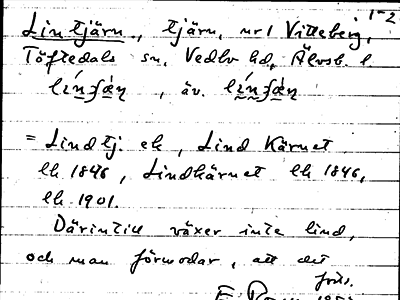 1-2
Lintjärn, tjärn, nr 1 Vitteberg,
Töftedals sn, Vedbo hd, Älvsb. l
, äv.
= Lindtj. ek, Lind Kärnet
lk 1846, Lindkärnet lk 1846,
lk 1901.
Därintill växer inte lind,
och man förmodar, att det